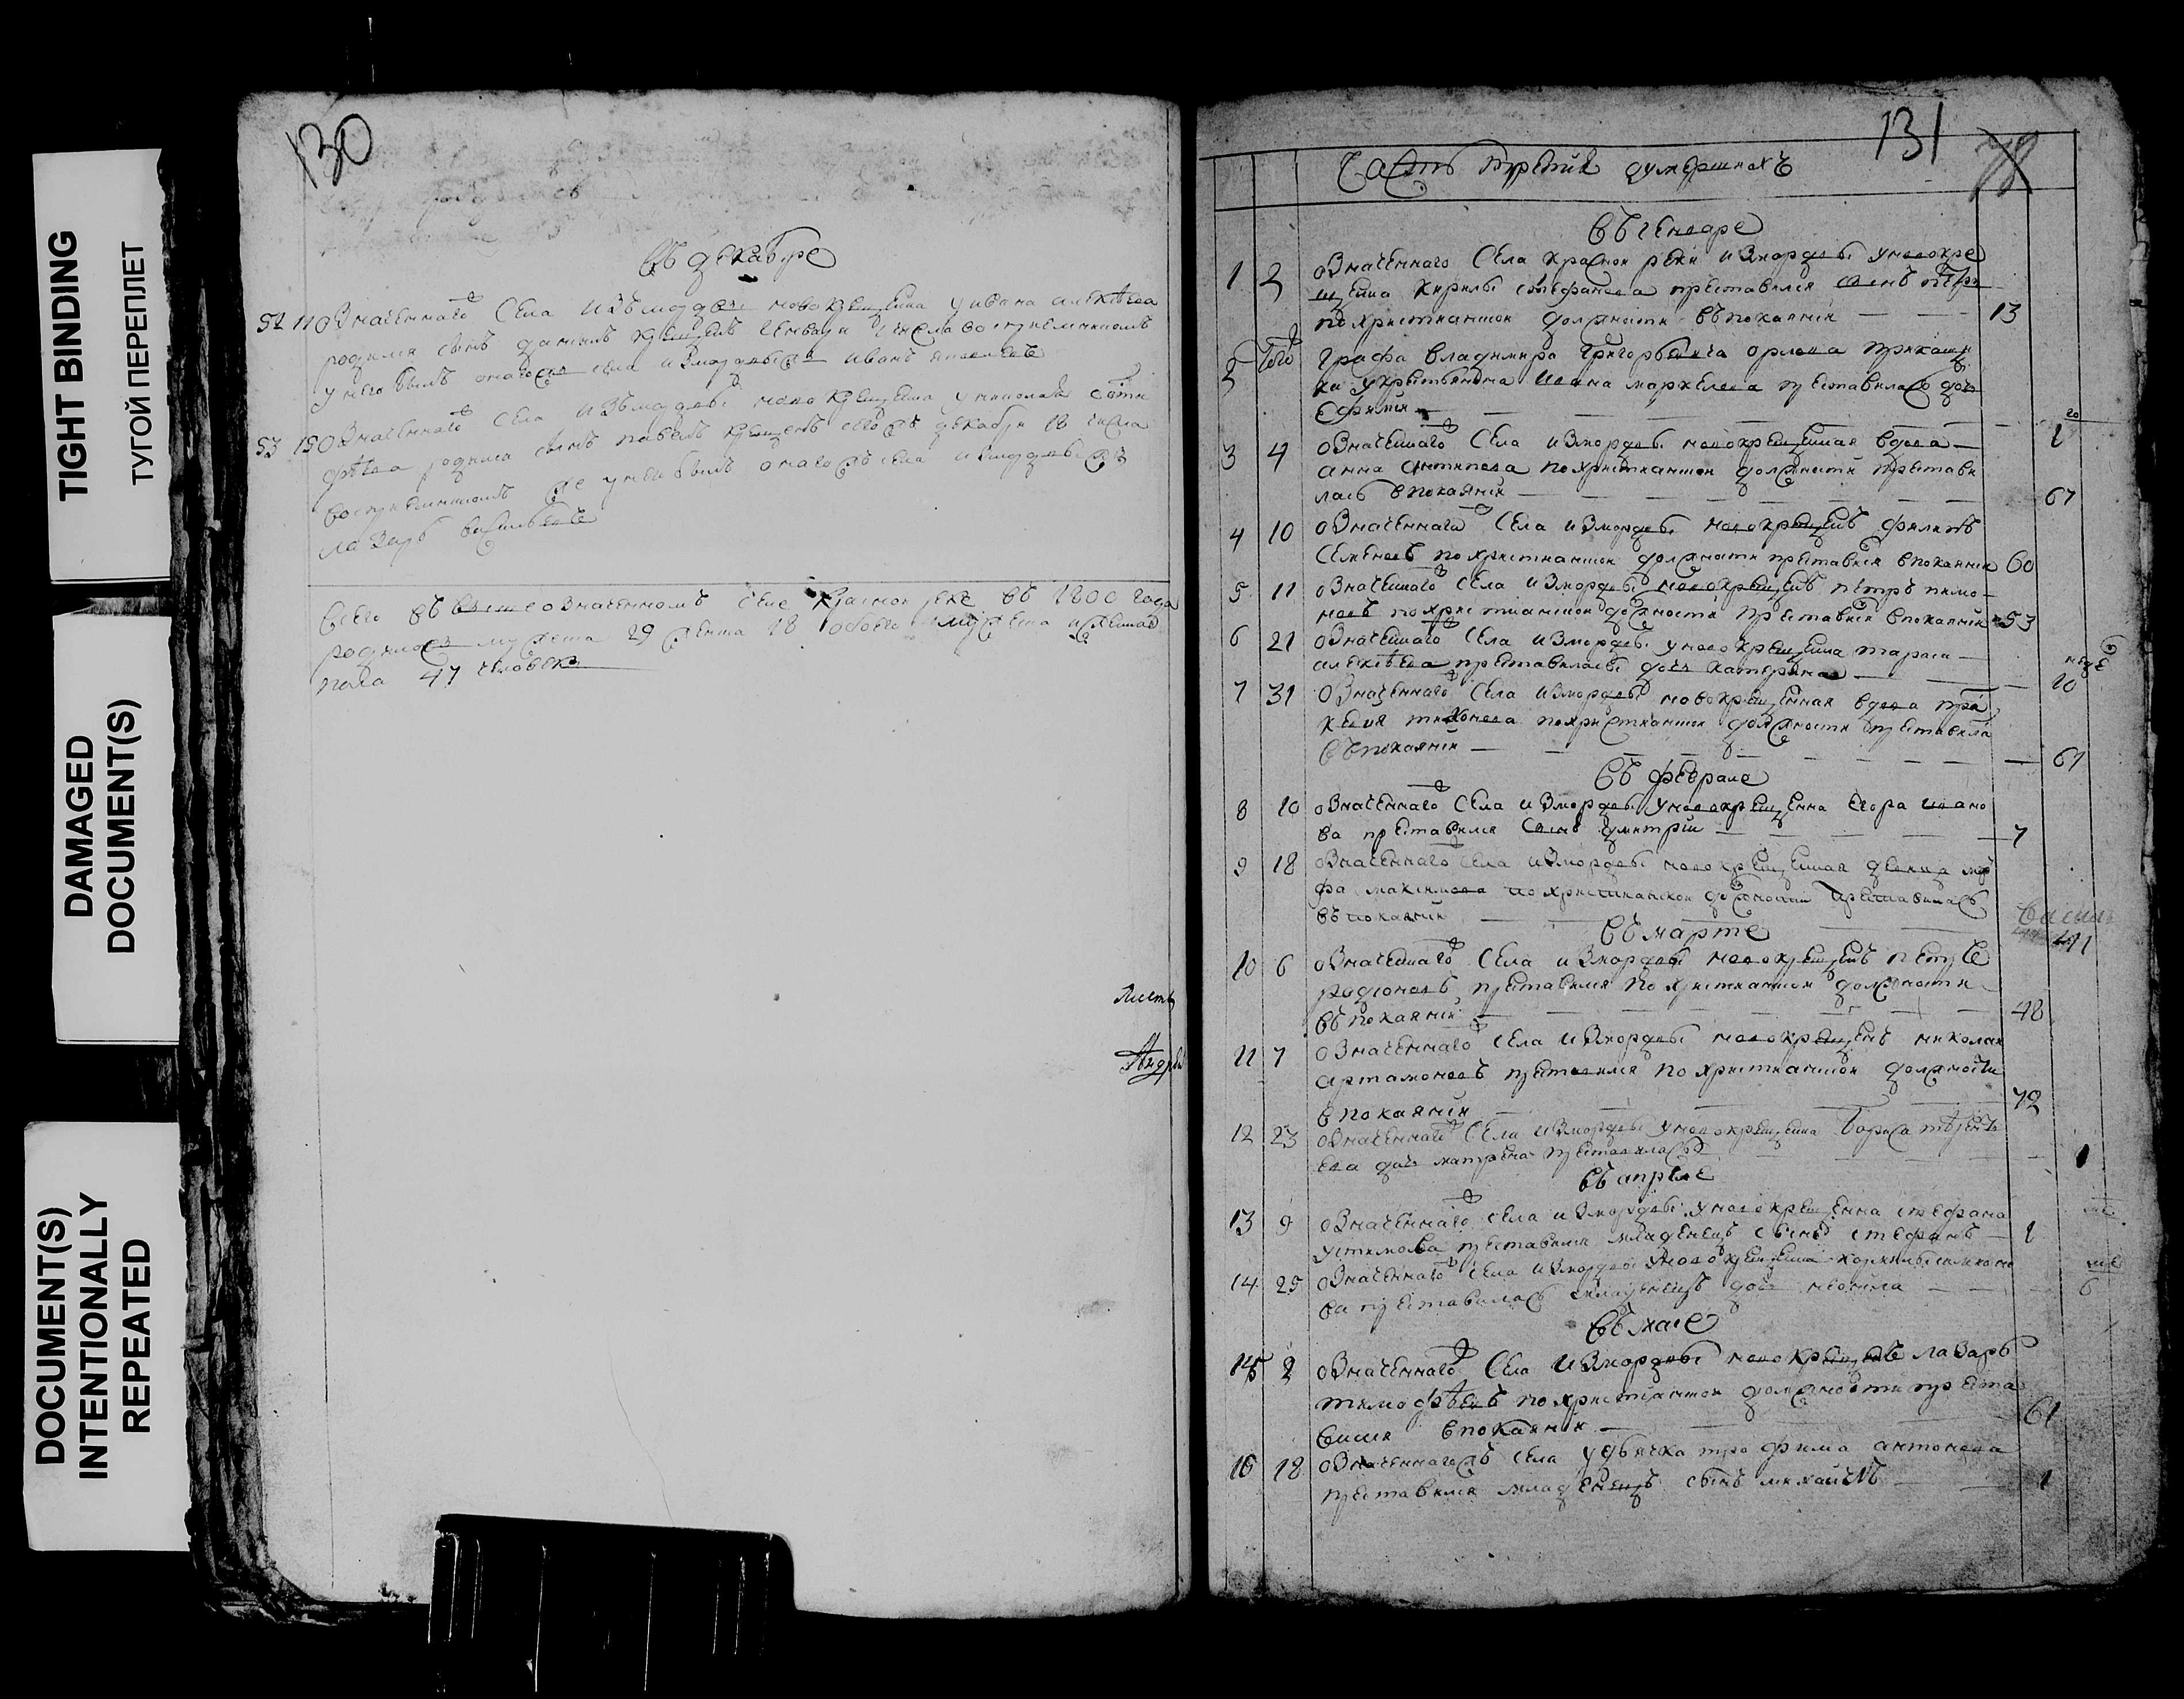 TIGHT BINDING
ТУГОЙ ПЕРЕПЛЕТ
DAMAGED
DOCUMENT(S)
DOCUMENT(S)
INTENTIONALLY
REPEATED
130
Въ декабре
52 11 Означеннаго села изъ мордвы новокрещена у ивана алексѣева
родился сынъ данилъ крещенъ числа восприемникомъ
у него былъ онагожъ села измордвы иванъ
53 15 Означеннаго села изъ мордвы новокрещена у николая
родился сынъ павелъ крещенъ декабря 18 числа
восприемникомъ у него былъ онагожъ села измордвы
лазарь васильевъ
Всего въ означенномъ селе красной реке въ 1800 года
родилось мужеска 29 женска 18 обоего мужеска и женска
пола 47 человекъ
131
78
Часть третия оумершихъ
Въ генваре
1 2 Означеннаго села красной реки измордвы уновокре
щена кирилы стефанова преставился сынъ петръ
похристианской должности въпокаянии 13
2 того графа владимира григорьевича орлова
укрестьянина ивана маркелова преставилась дочь
софия
3 4 Означеннаго села измордвы новокрещеная вдова
анна антипова похристианской должности престави
лась впокаянии 67
4 10 Означеннаго села измордвы новокрещенъ филипъ
семеновъ похристианской должности преставися впокаянии 60
5 11 Означеннаго села измордвы новокрещенъ петръ пимо
новъ похристианской должности преставися впокаянии 53
6 21 Означеннаго села измордвы уновокрещена тараса
алексѣева преставилась дочь катерина 10
7 31 Означеннаго села измордвы новокрещенная вдова пра
ковия тихонова похристианской должности преставила
въпокаянии 61
Въ феврале
8 10 Означеннаго села измордвы уновокрещенна егора ивано
ва преставился сынъ димитрий 7
9 18 Означеннаго села измордвы новокрещеная девица мар
фа максимова похристианской должности преставилась
въпокаянии 41
Въ марте
10 6 Означеннаго села измордвы новокрещенъ петръ
родионовъ преставился похристианской должности
въпокаянии 48
11 7 Означеннаго села измордвы новокрещенъ николай
артамоновъ преставился похристианской должности
впокаянии 72
12 23 Означеннаго села измордвы уновокрещена бориса терентъ
ева дочь матрена преставилась
въ апреле
13 9 Означеннаго села измордвы уновокрещенна стефана
устимова преставился младенецъ сынъ стефанъ 1
14 25 Означеннаго села измордвы уновокрещена
ва преставилась младенецъ дочь неонила 6
Въ мае
15 2 Означеннаго села измордвы новокрещенъ лазарь
тимофѣевъ похристианской должности преста
вился впокаянии 61
16 18 Означеннагожъ села удьячка трофима антонова
преставился младенецъ сынъ михаилъ 1